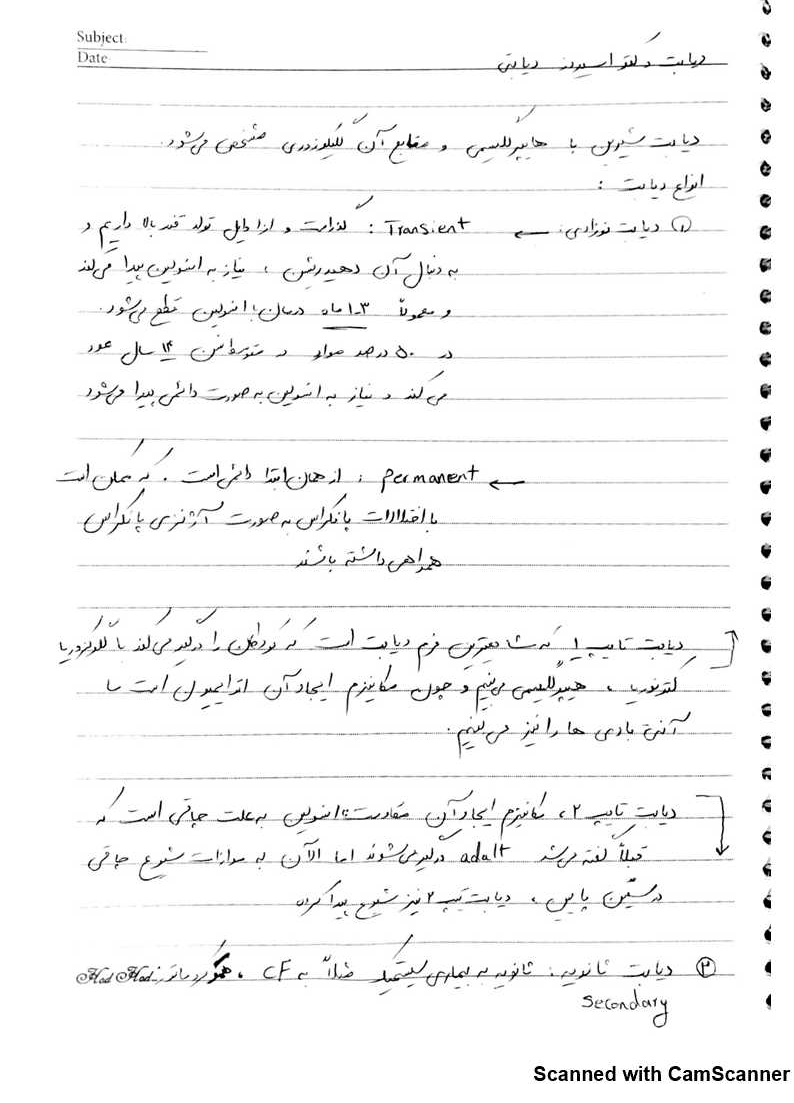 Subject:
Date
دیابت و کتواسیدوز دیابتی
دیابت شیرین با هایپرگلیسمی و متابع آن گلیکوزوری مشخص می‌شود.
انواع دیابت :
① دیابت نوزادی: ← Transient : گذراست و از اوایل تولد قند بالا داریم و
به دنبال آن دهیدریشن ، نیاز به انسولین پیدا می‌کند
و معمولاً ۳-۱ ماه درمان با انسولین قطع می‌شود.
در ۵۰ درصد موارد در متوسط سن ۱۴ سال عود
می‌کند و نیاز به انسولین به صورت دائمی پیدا می‌شود
← permanent : از همان ابتدا دائمی است . که ممکن است
با اختلالات پانکراس به صورت آژنزی پانکراس
همراهی داشته باشند
دیابت تایپ ۱ که شایعترین فرم دیابت است که کودکان را درگیر می‌کند با گلوکزوریا
کتونوریا ، هیپرگلیسمی می‌بینیم و چون مکانیزم ایجاد آن اتوایمیون است ما
آنتی بادی ها را نیز می‌بینیم.
دیابت تایپ ۲، مکانیزم ایجاد آن مقاومت به انسولین به علت چاقی است که
قبلاً گفته می‌شد adult درگیر می‌شوند اما الآن به موازات شیوع چاقی
در سنین پایین ، دیابت تیپ ۲ نیز شیوع پیدا کرده
② دیابت ثانویه : ثانویه به بیماری سیستمیک مثلاً به CF ،
Secondary
Scanned with CamScanner